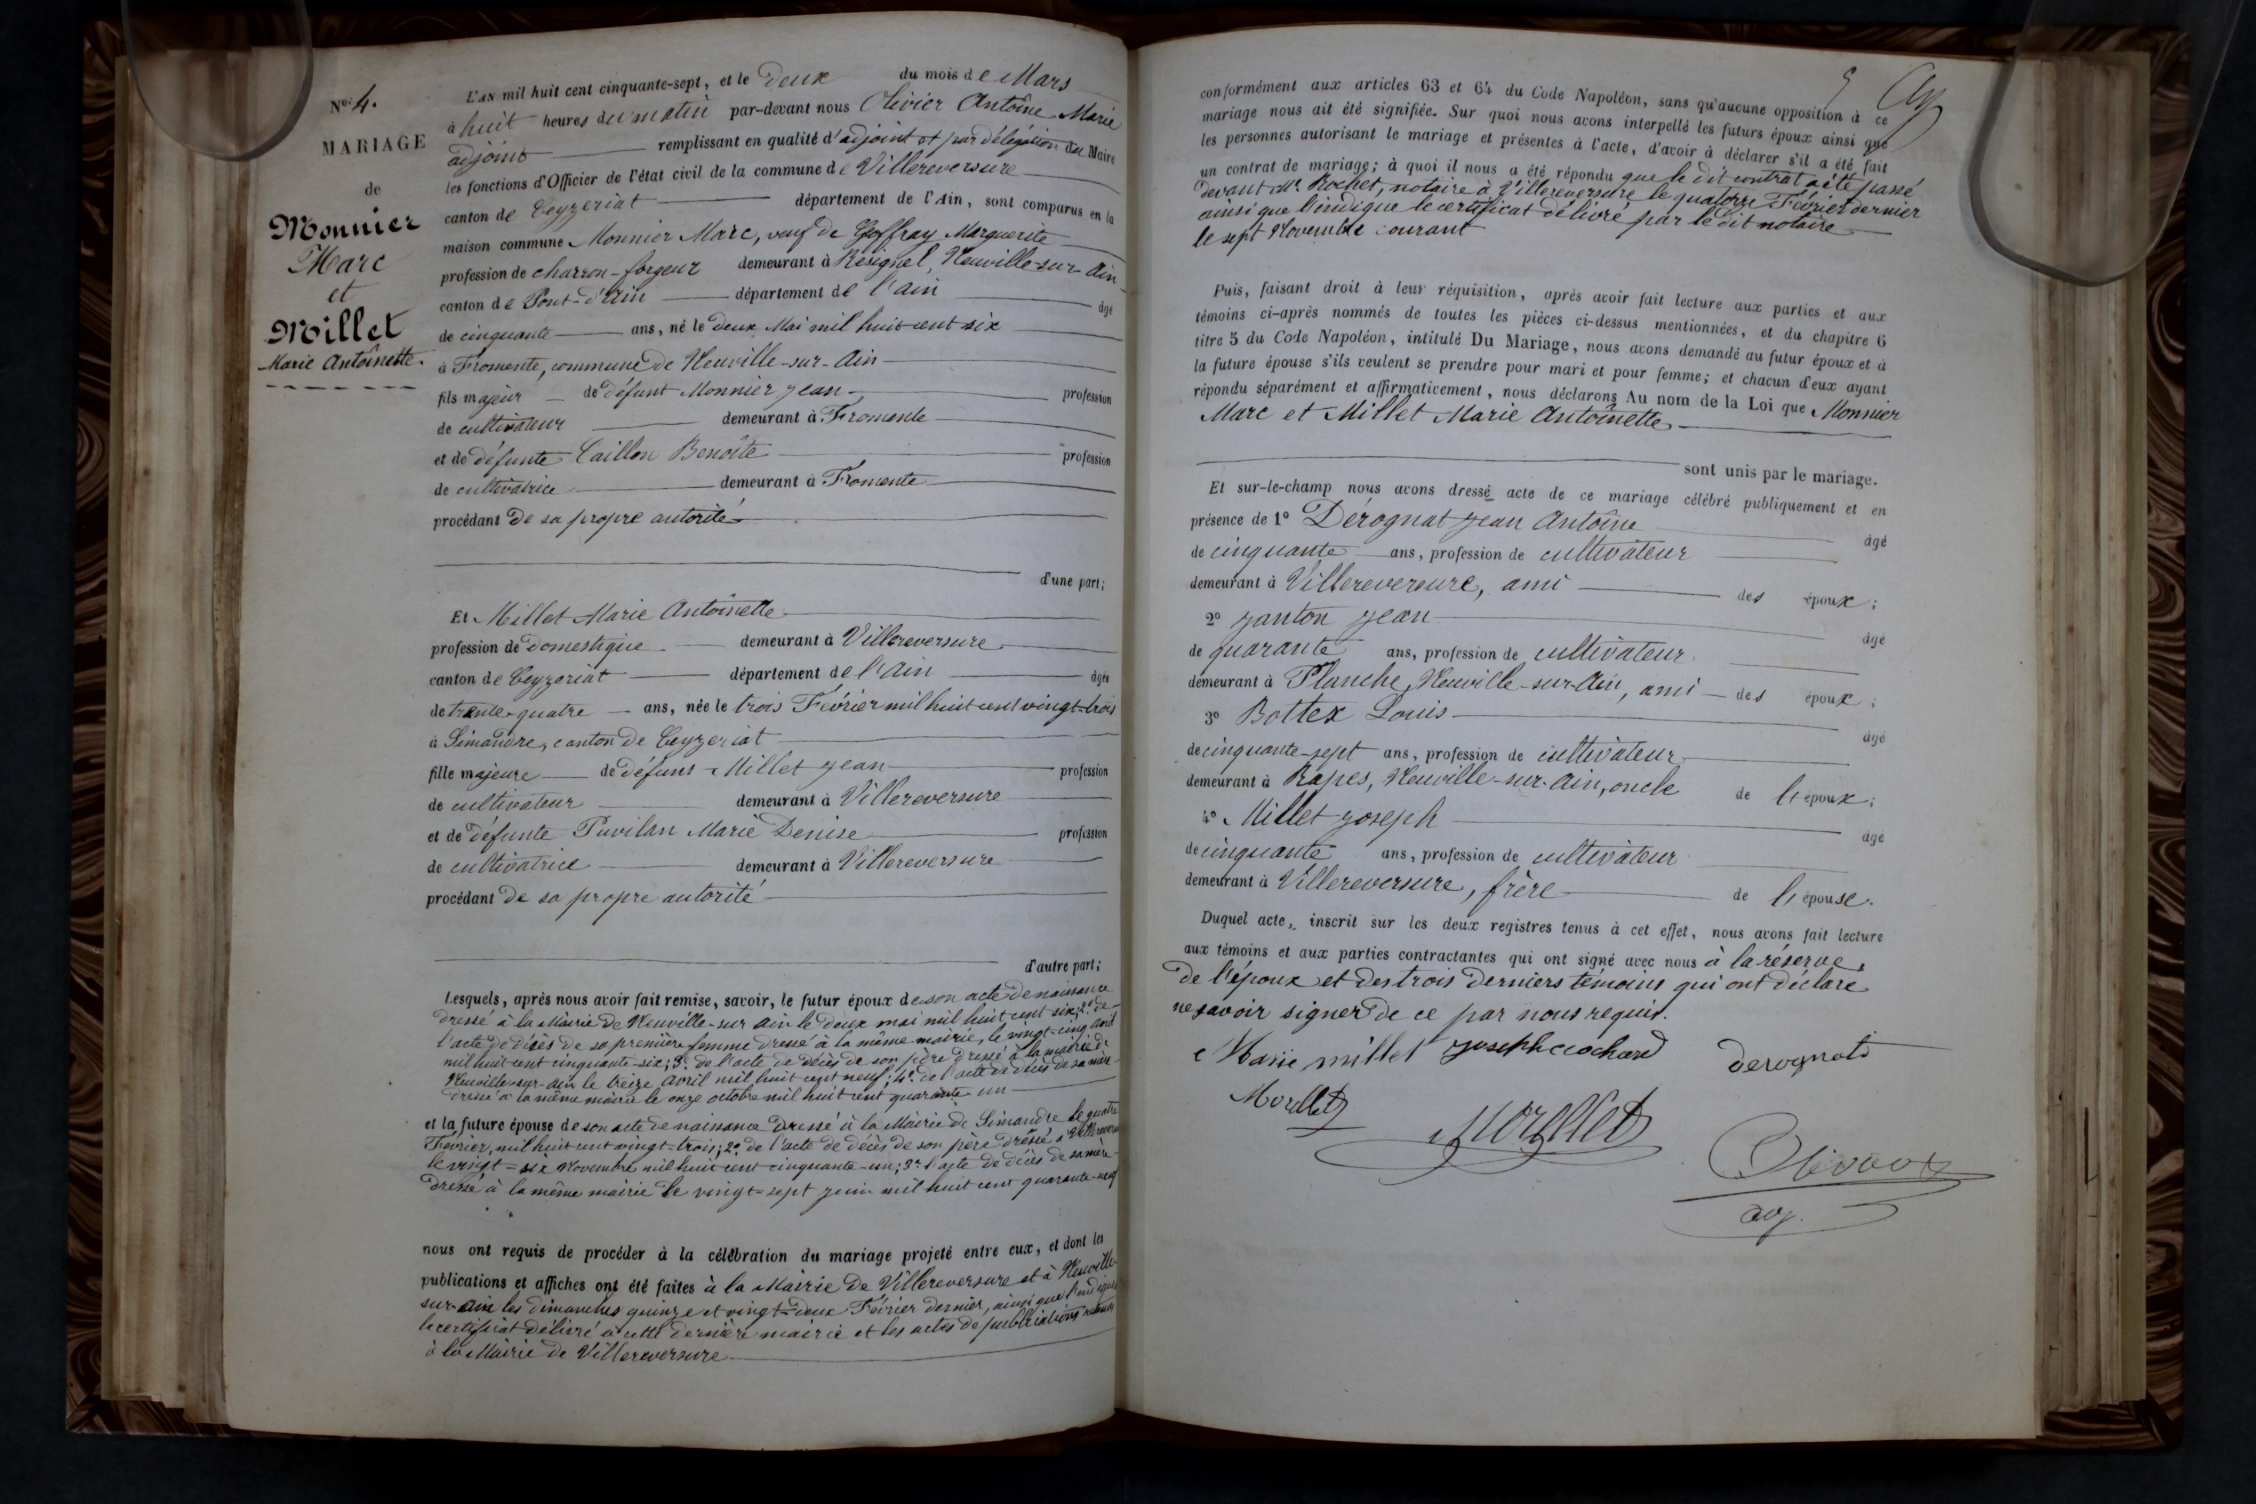 N° 4.
MARIAGE
de
Monnier
Marc
et
Millet
Marie Antoinette
L'AN mil huit cent cinquante-sept, et le deux du mois de Mars
à huit heures du matin par-devant nous Olivier Antoine Marie
adjoint remplissant en qualité d'adjoint et par délégation du Maire
les fonctions d'Officier de l'état civil de la commune de Villereversure
canton de Ceyzeriat département de l'Ain, sont comparus en la
maison commune Monnier Marc, veuf de Goffray Marguerite
profession de charron-forgeur demeurant à Résignel, Neuville-sur-Ain
canton de Pont-d'Ain département de l'ain âgé
de cinquante ans, né le deux Mai mil huit cent six
à Fromente, commune de Neuville-sur-Ain
fils majeur de défunt Monnier Jean profession
de cultivateur demeurant à Fromente
et de défunte Caillon Benoîte profession
de cultivatrice demeurant à Fromente
procédant de sa propre autorité
d'une part;
Et Millet Marie Antoinette
profession de domestique demeurant à Villereversure
canton de Ceyzeriat département de l'Ain âgée
de trente-quatre ans, née le trois Février mil huit cent vingt-trois
à Simandre, canton de Ceyzeriat
fille majeure de défunt Millet Jean profession
de cultivateur demeurant à Villereversure
et de défunte Puvilan Marie Denise profession
de cultivatrice demeurant à Villereversure
procédant de sa propre autorité
d'autre part;
Lesquels, après nous avoir fait remise, savoir, le futur époux de son acte de naissance
dressé à la Mairie de Neuville-sur Ain le deux mai mil huit cent six; 2° de
l'acte de décès de sa première femme dressé à la même mairie, le vingt-cinq avril
mil huit cent cinquante-six; 3° de l'acte de décès de son père dressé à la mairie de
Neuville-sur-Ain le treize avril mil huit cent neuf; 4° de l'acte de décès de sa mère
dressé à la même mairie le onze octobre mil huit cent quarante un
et la future épouse de son acte de naissance dressé à la Mairie de Simandre le quatre
Février mil huit cent vingt-trois; 2° de l'acte de décès de son père dressé à Villereversure
le vingt-six Novembre mil huit cent cinquante-un; 3° l'acte de décès de sa mère
dressé à la même mairie le vingt-sept juin mil huit cent quarante-neuf
nous ont requis de procéder à la célébration du mariage projeté entre eux, et dont les
publications et affiches ont été faites à la Mairie de Villereversure et à Neuville
sur-Ain les dimanches quinze et vingt-deux Février dernier, ainsi que l'indique
le certificat délivré à cette dernière mairie et les actes de publications
à la Mairie de Villereversure
conformément aux articles 63 et 64 du Code Napoléon, sans qu'aucune opposition à ce
mariage nous ait été signifiée. Sur quoi nous avons interpellé les futurs époux ainsi que
les personnes autorisant le mariage et présentes à l'acte, d'avoir à déclarer s'il a été fait
un contrat de mariage; à quoi il nous a été répondu que le dit contrat a été passé
devant Me Rochet, notaire à Villereversure le quatorze Février dernier
ainsi que l'indique le certificat délivré par le dit notaire
le sept Novembre courant
Puis, faisant droit à leur réquisition, après avoir fait lecture aux parties et aux
témoins ci-après nommés de toutes les pièces ci-dessus mentionnées, et du chapitre 6
titre 5 du Code Napoléon, intitulé Du Mariage, nous avons demandé au futur époux et à
la future épouse s'ils veulent se prendre pour mari et pour femme; et chacun d'eux ayant
répondu séparément et affirmativement, nous déclarons Au nom de la Loi que Monnier
Marc et Millet Marie Antoinette
sont unis par le mariage.
Et sur-le-champ nous avons dressé acte de ce mariage célébré publiquement et en
présence de 1° Dérognat Jean Antoine âgé
de cinquante ans, profession de cultivateur
demeurant à Villereversure, ami des époux;
2° Janton Jean âgé
de quarante ans, profession de cultivateur
demeurant à Planche, Neuville-sur-Ain, ami des époux;
3° Bottex Louis âgé
de cinquante-sept ans, profession de cultivateur
demeurant à Rapes, Neuville-sur-Ain, oncle de l'époux;
4° Millet Joseph âgé
de cinquante ans, profession de cultivateur
demeurant à Villereversure, frère de l'épouse.
Duquel acte, inscrit sur les deux registres tenus à cet effet, nous avons fait lecture
aux témoins et aux parties contractantes qui ont signé avec nous à la réserve
de l'époux et des trois derniers témoins qui ont déclaré
ne savoir signer de ce par nous requis.
Marie millet Joseph cochard derognat
Morellet Morellet
Olivier
adj.